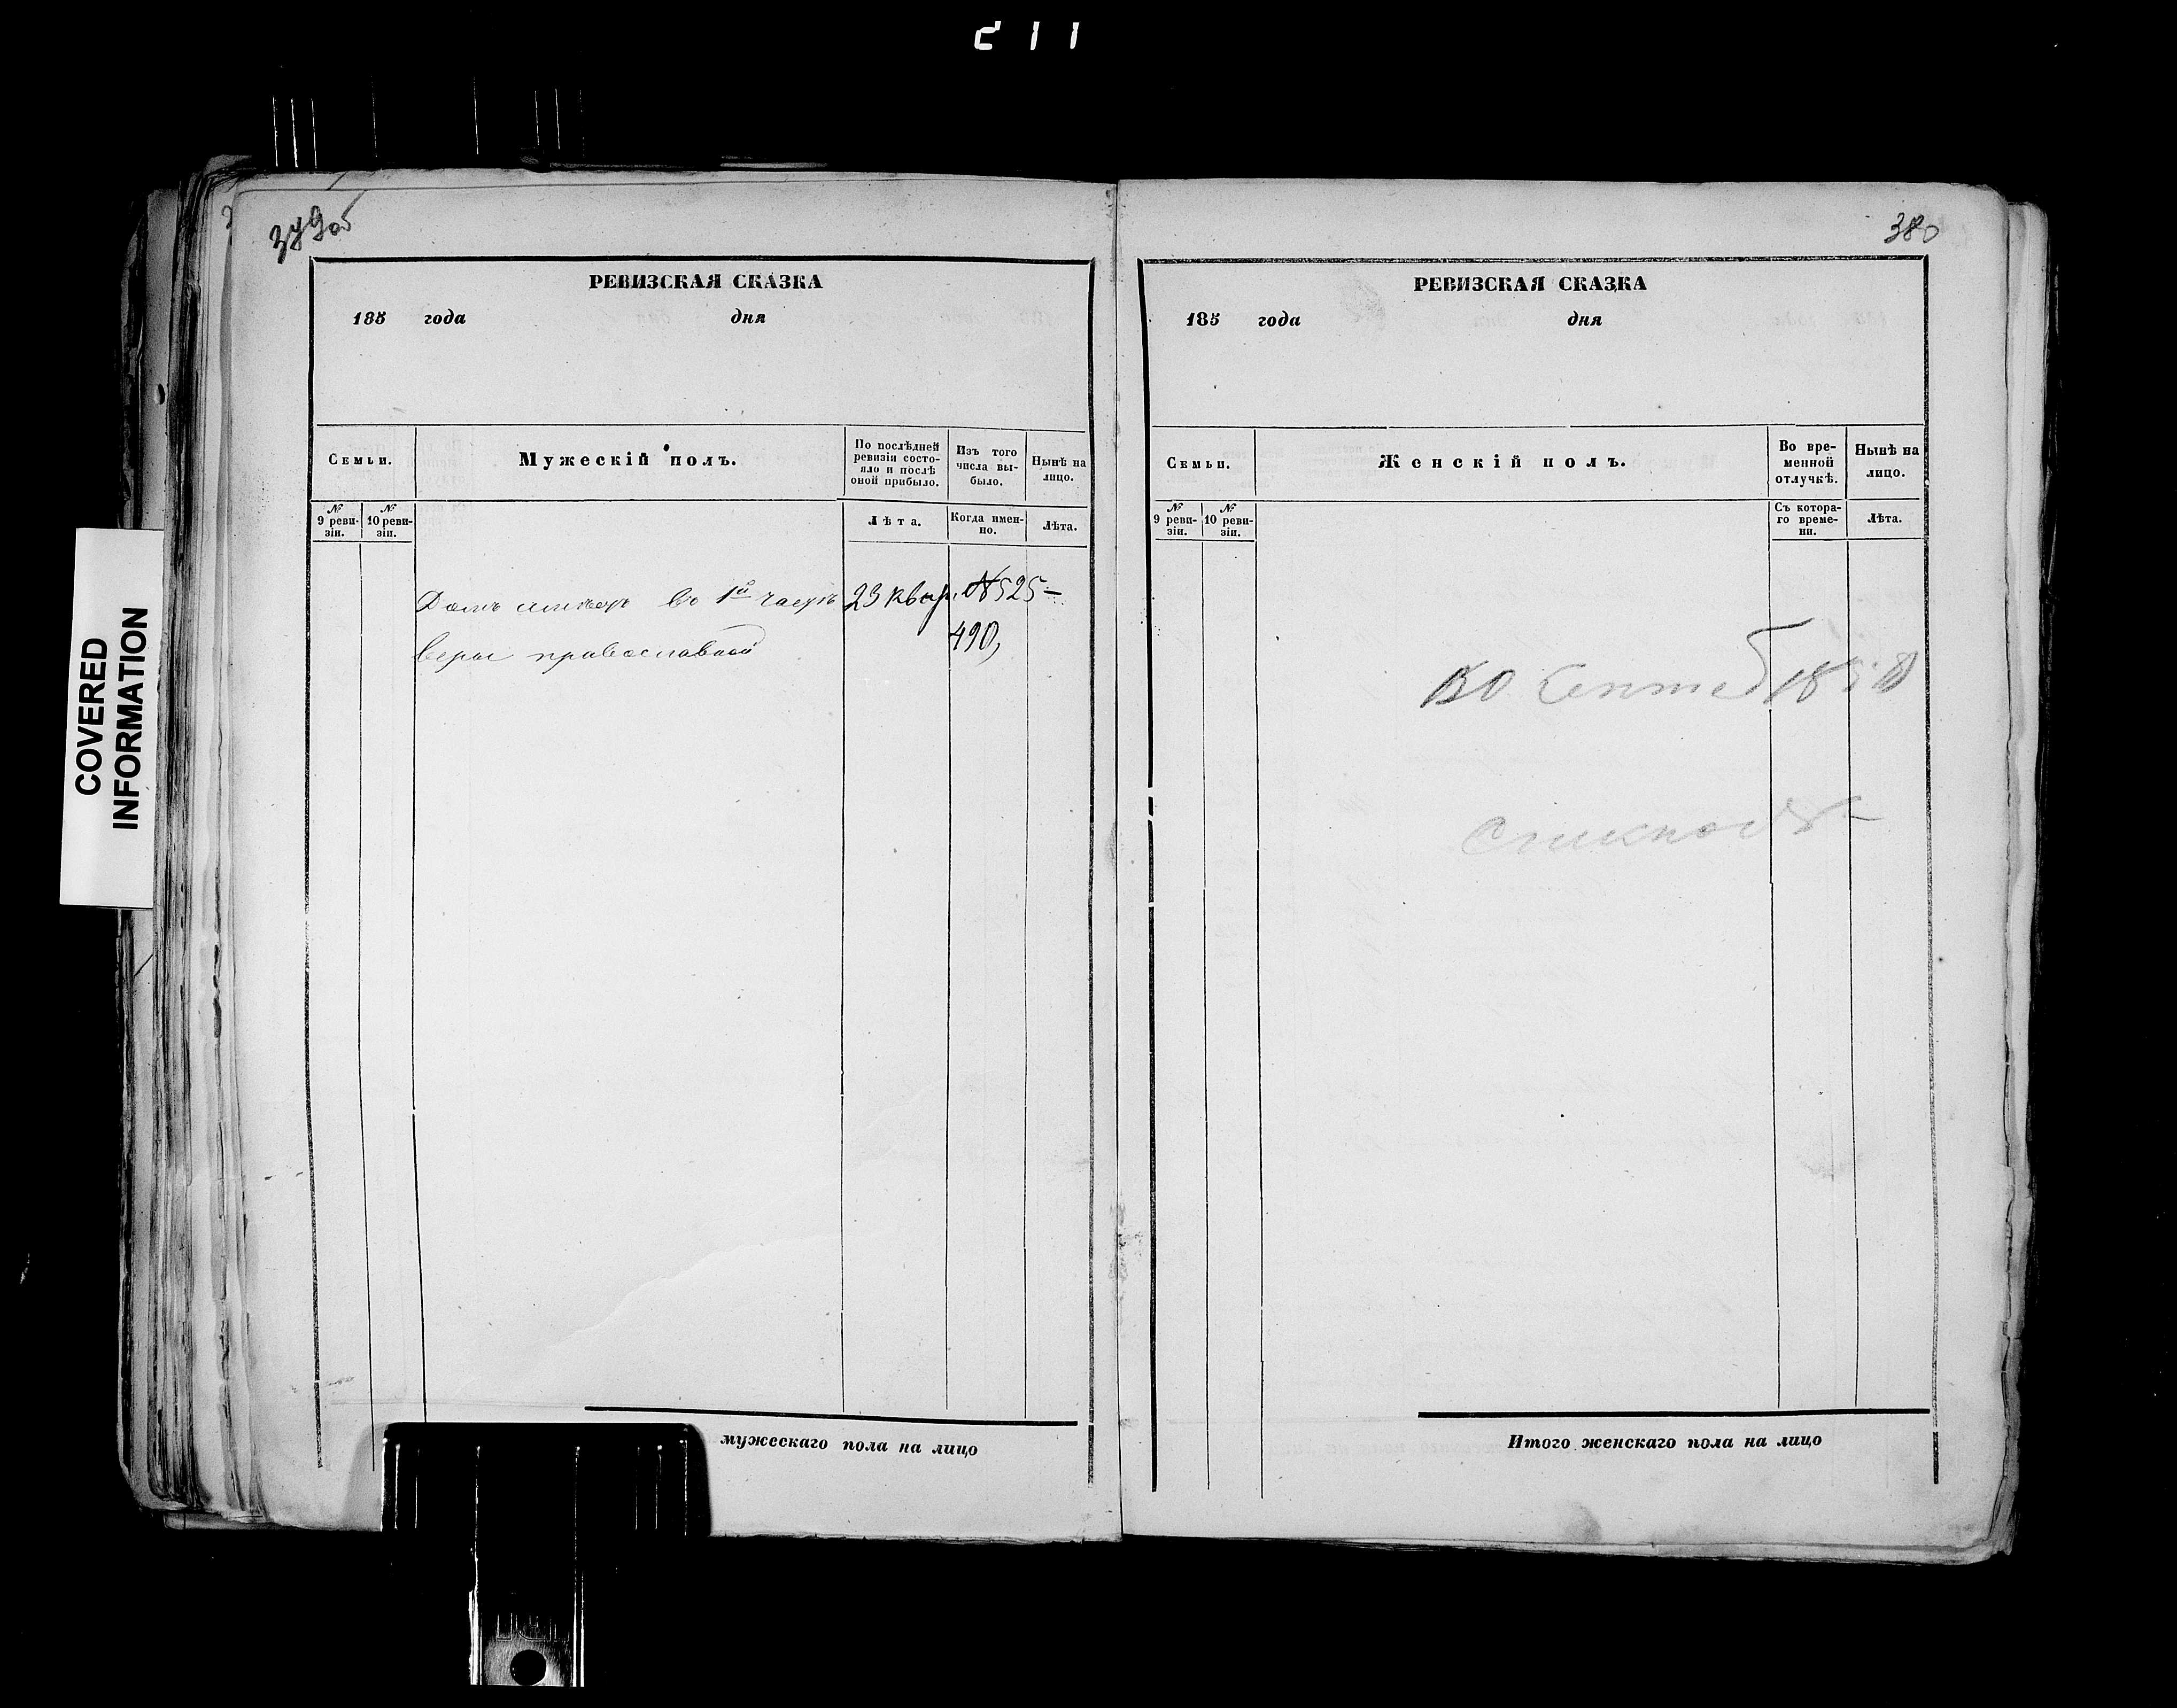 211
379об
РЕВИЗСКАЯ СКАЗКА
185 года дня
Семьи.
Мужескій полъ.
По послѣдней ревизіи состояло и послѣ оной прибыло.
Изъ того числа выбыло.
Нынѣ на лицо.
№ 9 ревизіи.
№ 10 ревизіи.
Лѣта.
Когда именно.
Лѣта.
Домъ имѣетъ въ 1й части 23 кварт. № 525–
490,
веры православной
мужескаго пола на лицо
380
РЕВИЗСКАЯ СКАЗКА
185 года дня
Семьи.
Женскій полъ.
Во временной отлучкѣ.
Нынѣ на лицо.
№ 9 ревизіи.
№ 10 ревизіи.
Съ котораго времени.
Лѣта.
Сентяб
Итого женскаго пола на лицо
COVERED
INFORMATION